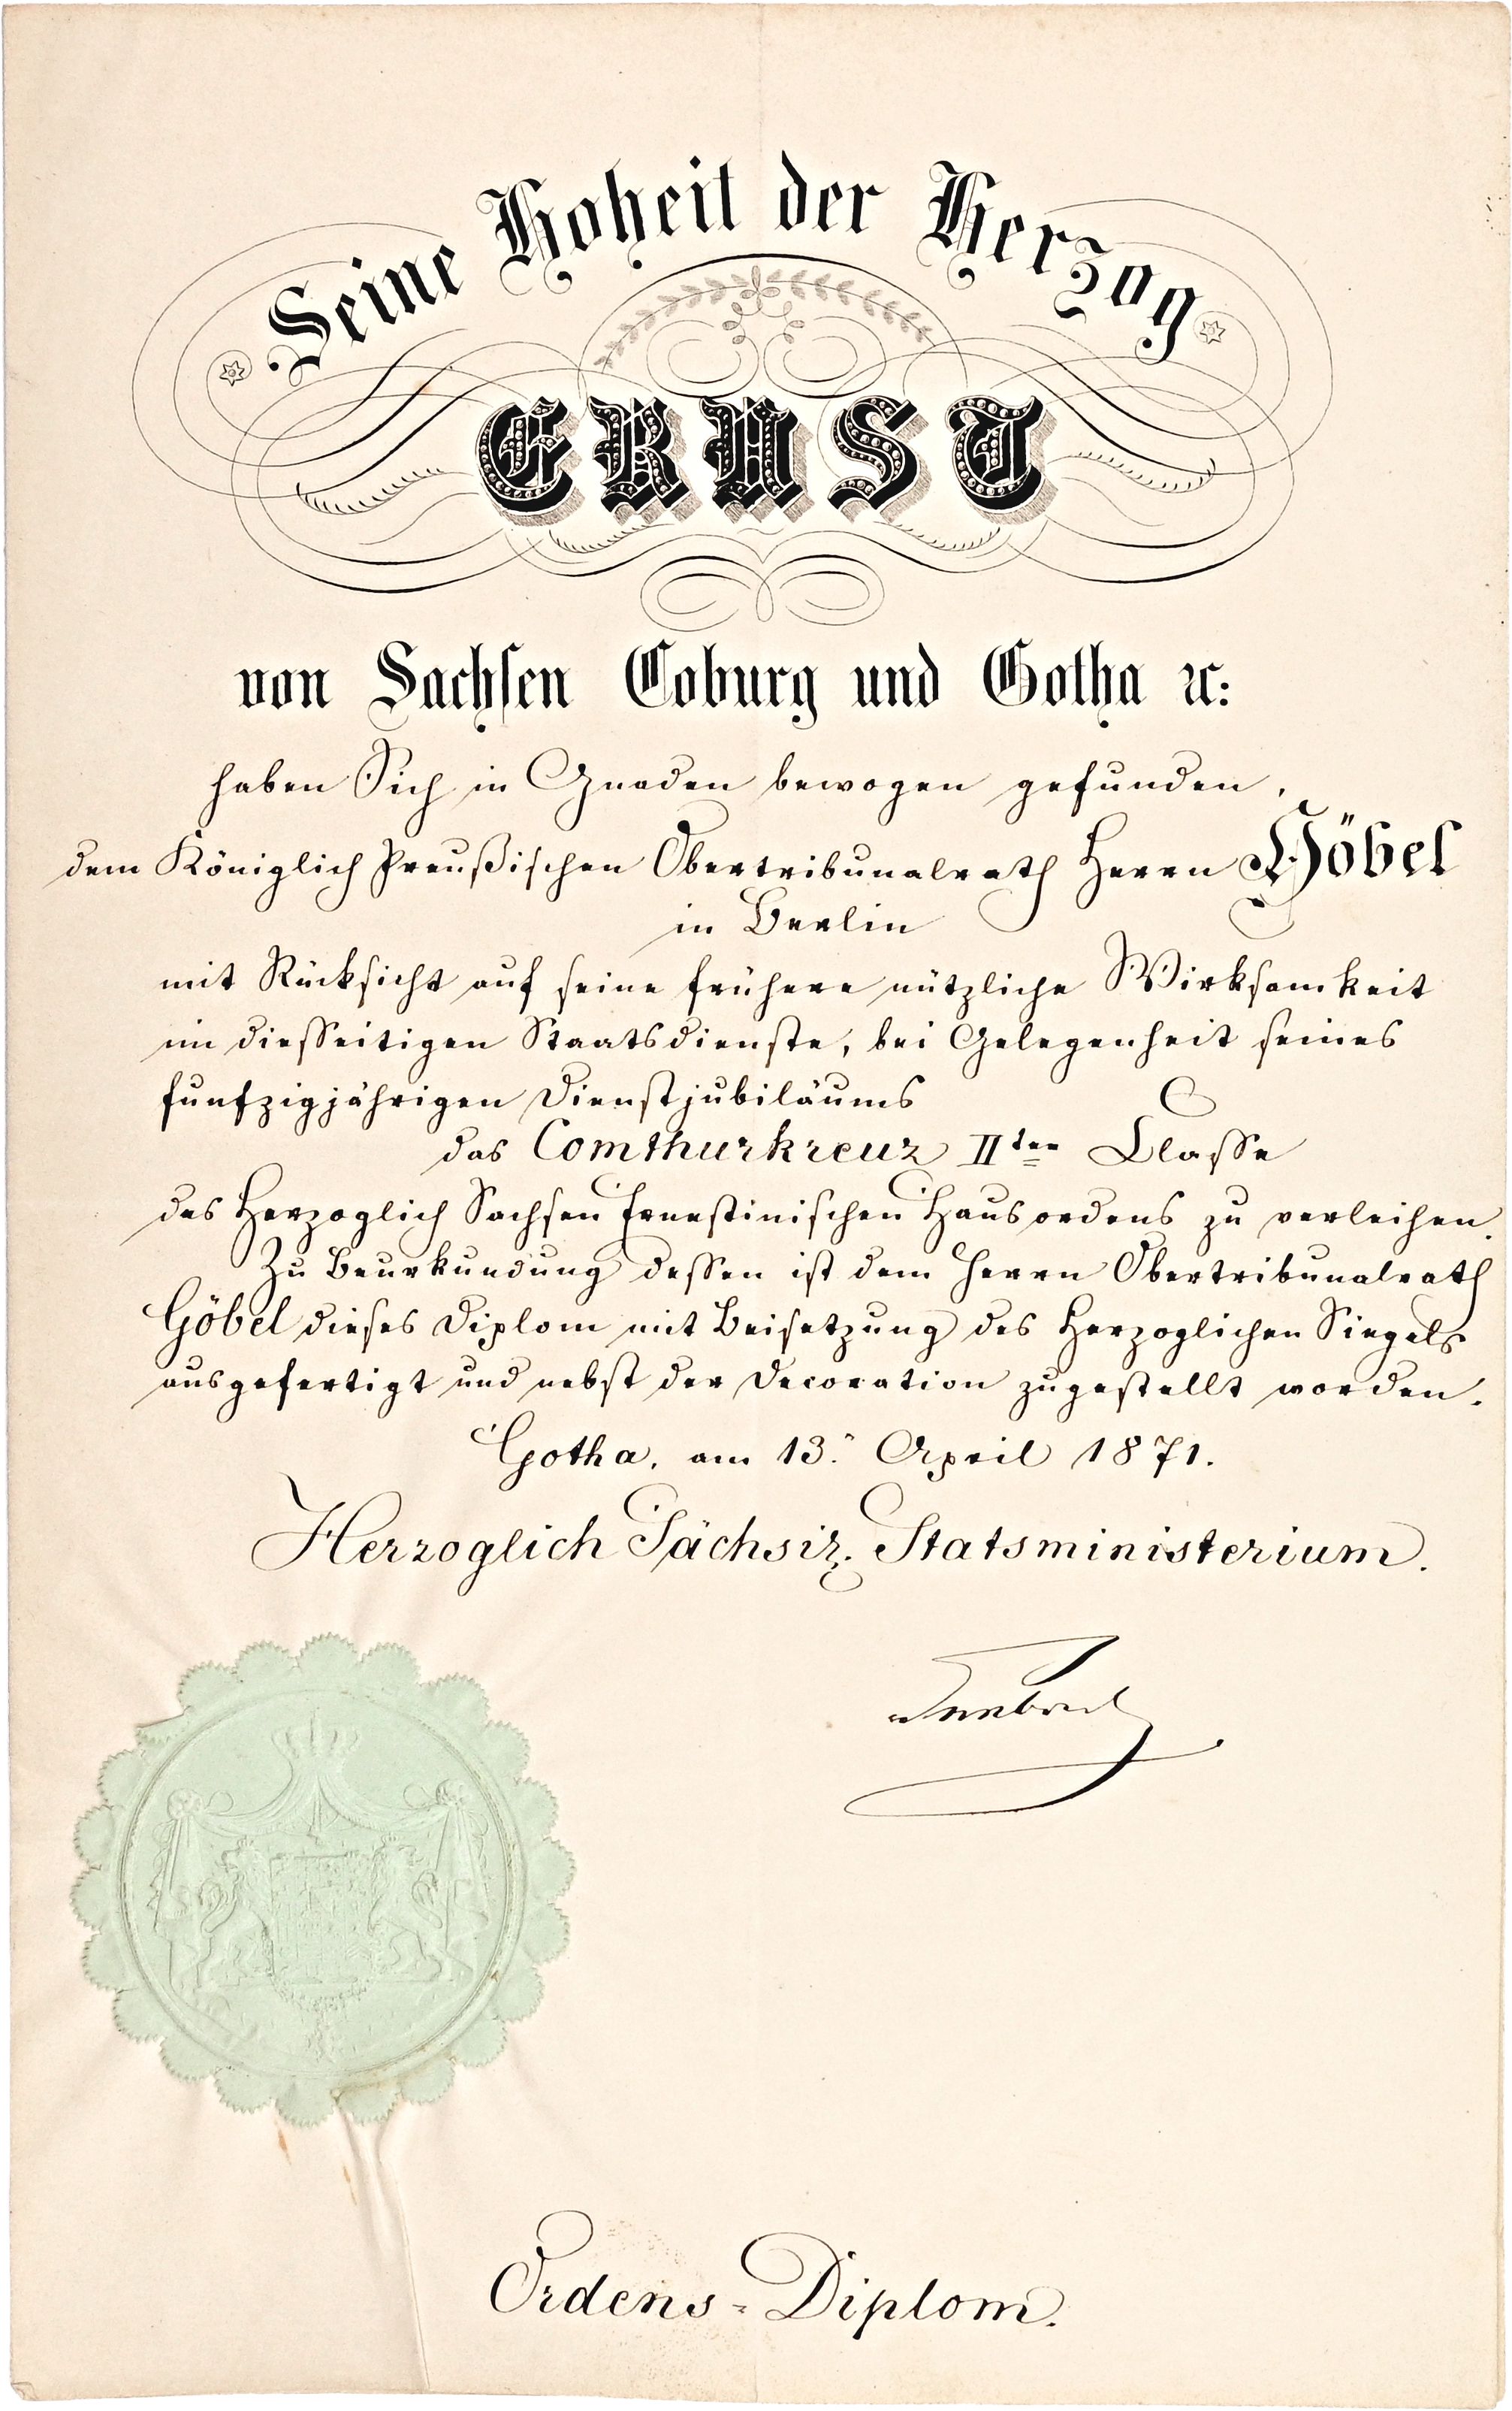 Seine Hoheit der Herzog
ERNST
von Sachsen Coburg und Gotha ꝛc:
haben Sich in Gnaden bewogen gefunden,
dem Königlich Preußischen Obertribunalrath Herrn Göbel
in Berlin
mit Rücksicht auf seine frühere nützliche Wirksamkeit
im diesseitigen Staatsdienste, bei Gelegenheit seines
funfzigjährigen Dienstjubiläums
das Comthurkreuz IIter Classe
des Herzoglich Sachsen Ernestinischen Hausordens zu verleihen.
Zu Beurkundung dessen ist dem Herrn Obertribunalrath
Göbel dieses Diplom mit Beisetzung des Herzoglichen Siegels
ausgefertigt und nebst der Decoration zugestellt worden.
Gotha, am 13. April 1871.
Herzoglich Sächsis. Statsministerium.
Ordens-Diplom.